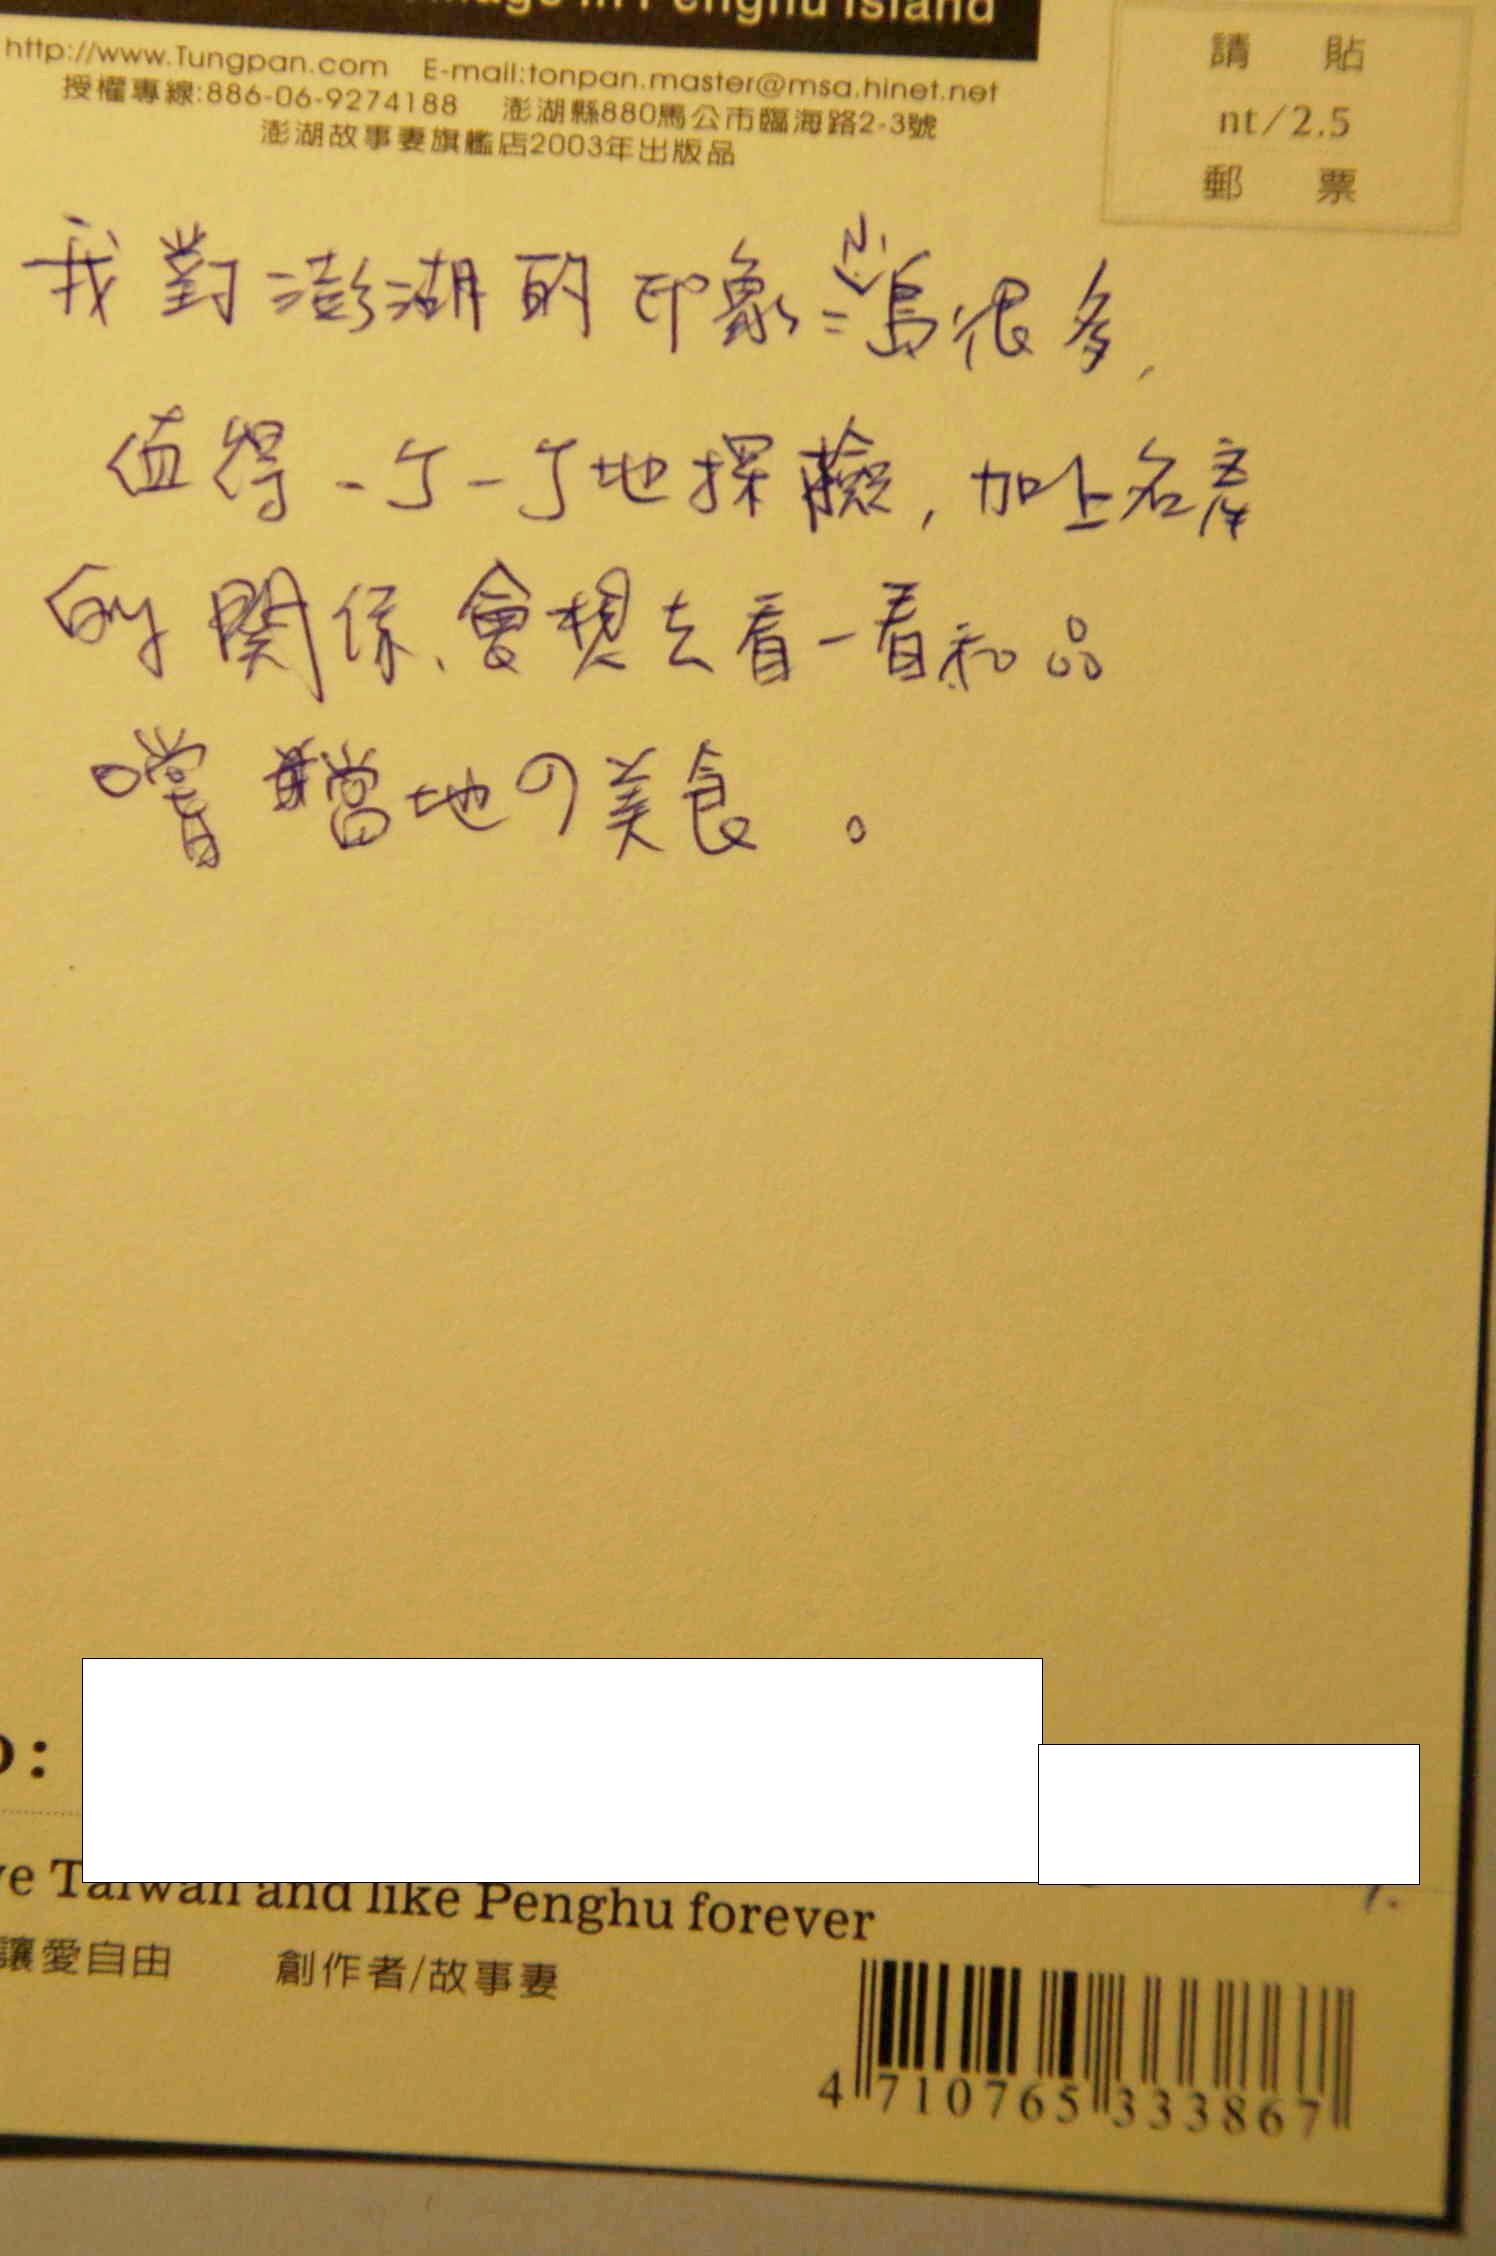 Penghu Island
http://www.Tungpan.com E-mail:tonpan.master@msa.hinet.net
授權專線:886-06-9274188 澎湖縣880馬公市臨海路2-3號
澎湖故事妻旗艦店2003年出版品
請 貼
nt/2.5
郵 票
我對澎湖的印象=小島很多,
值得一ㄎ一ㄎ地探險,加上名產
的關係、會想去看一看和品
嚐當地の美食。
:
Taiwan and like Penghu forever
讓愛自由 創作者/故事妻
4 710765 333867